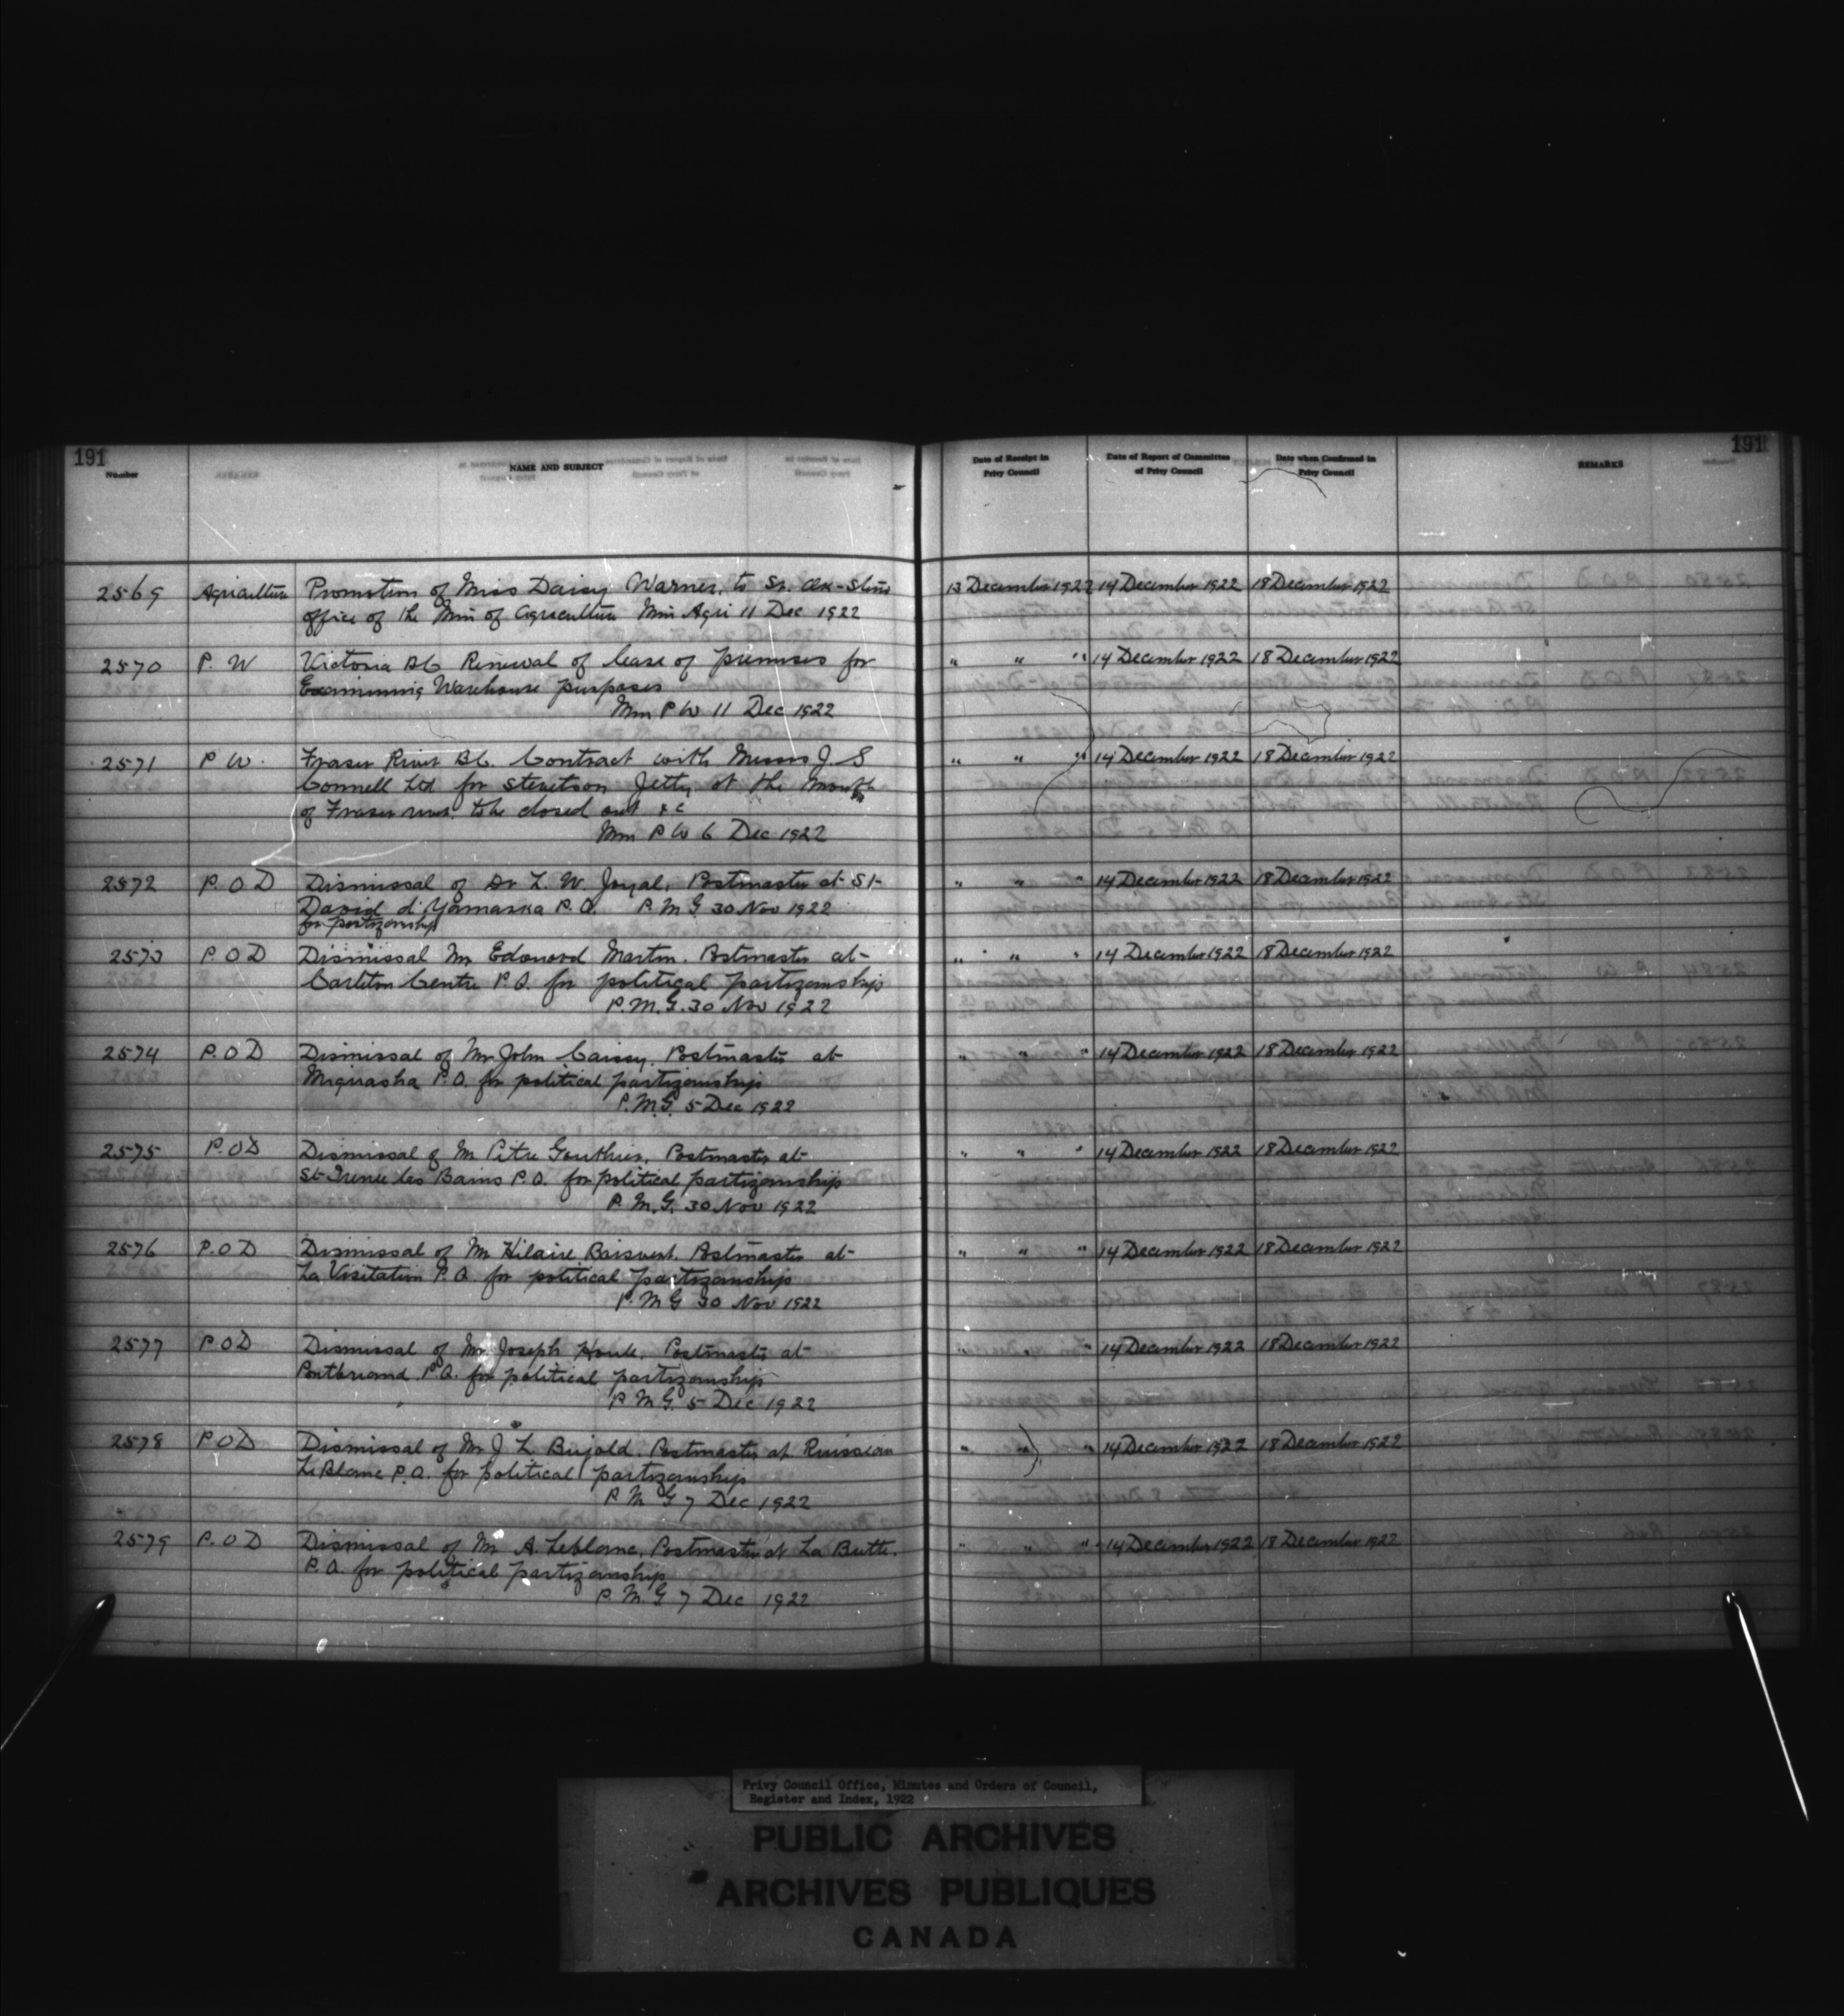 191
191
Number
NAME AND SUBJECT
Date of Receipt in
Privy Council
Date of Report of Committee
of Privy Council
Date when Confirmed in
Privy Council
REMARKS
2569 Agriculture Promotion of Miss Daisy Warner, to Sr. Clk-Steno 13 December 1922 14 December 1922 18 December 1922
office of the Min of Agriculture Min Agri 11 Dec 1922
2570 P. W Victoria BC Renewal of lease of premises for " " " 14 December 1922 18 December 1922
Examining Warehouse purposes
Min P W 11 Dec 1922
2571 P W. Fraser River BC. Contract with Messrs J. S " " " 14 December 1922 18 December 1922
Connell Ltd for Stevetson Jetty at the mouth
of Fraser river to be closed out &c
Min P W 6 Dec 1922
2572 P. O D Dismissal of Dr L. W. Joyal, Postmaster at St- " " " 14 December 1922 18 December 1922
David d'Yamaska P.O. P. M G. 30 Nov 1922
for partizanship
2573 P. O D Dismissal Mr Edouard Martin. Postmaster at- " " " 14 December 1922 18 December 1922
Carleton Centre P.O. for political partizanship
P.M.G. 30 Nov 1922
2574 P. O D Dismissal of Mr John Caissy. Postmaster at- " " " 14 December 1922 18 December 1922
Miguasha P.O. for political partizanship
P.M.G. 5 Dec 1922
2575 P. O D Dismissal of Mr Pitre Gauthier, Postmaster at- " " " 14 December 1922 18 December 1922
St-Irenee les Bains P.O. for political partizanship
P. M.G. 30 Nov 1922
2576 P. O D Dismissal of Mr Hilaire Boisvert. Postmaster at- " " " 14 December 1922 18 December 1922
La Visitation P.O. for political partizanship
P. M G 30 Nov 1922
2577 P. O D Dismissal of Mr Joseph Houle. Postmaster at- " " " 14 December 1922 18 December 1922
Pontbriand P.O. for political partizanship
P M G. 5 Dec 1922
2578 P O D Dismissal of Mr J L. Bujold. Postmaster at Ruisseau " " " 14 December 1922 18 December 1922
LeBlanc P.O. for political partizanship
P M G 7 Dec 1922
2579 P. O D Dismissal of Mr A. Leblanc, Postmaster at La Butte. " " " 14 December 1922 18 December 1922
P.O. for political partizanship
P. M. G 7 Dec 1922
Privy Council Office, Minutes and Orders of Council,
Register and Index, 1922
PUBLIC ARCHIVES
ARCHIVES PUBLIQUES
CANADA